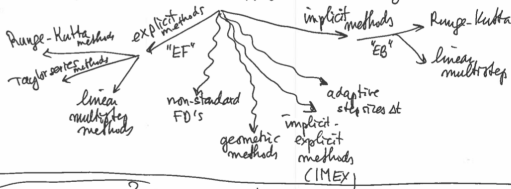 explicit methods
"EF"
Runge-Kutta methods
Taylor series methods
linear
multistep
methods
non-standard
FD's
geometric
methods
implicit-
explicit
methods
(IMEX)
adaptive
step sizes Δt
implicit
methods
"EB"
Runge-Kutta
linear
multistep